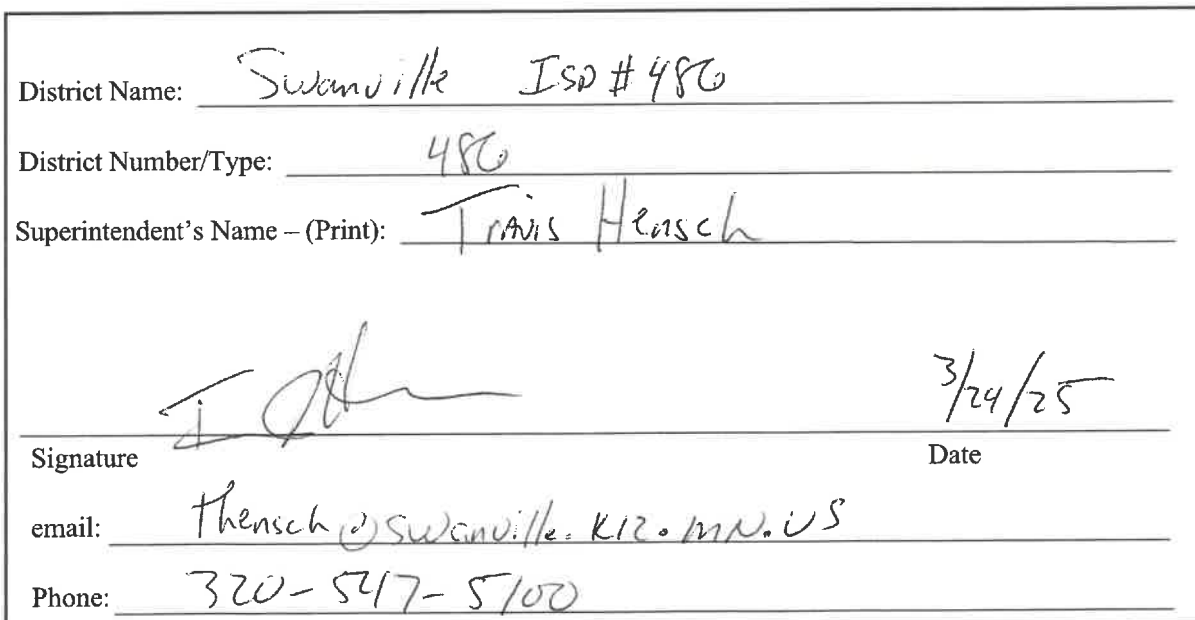 District Name: Swanville ISD # 486
District Number/Type: 486
Superintendent's Name – (Print): Travis Hensch
3/24/25
Signature Date
email: thensch@swanville.K12.MN.US
Phone: 320-547-5100